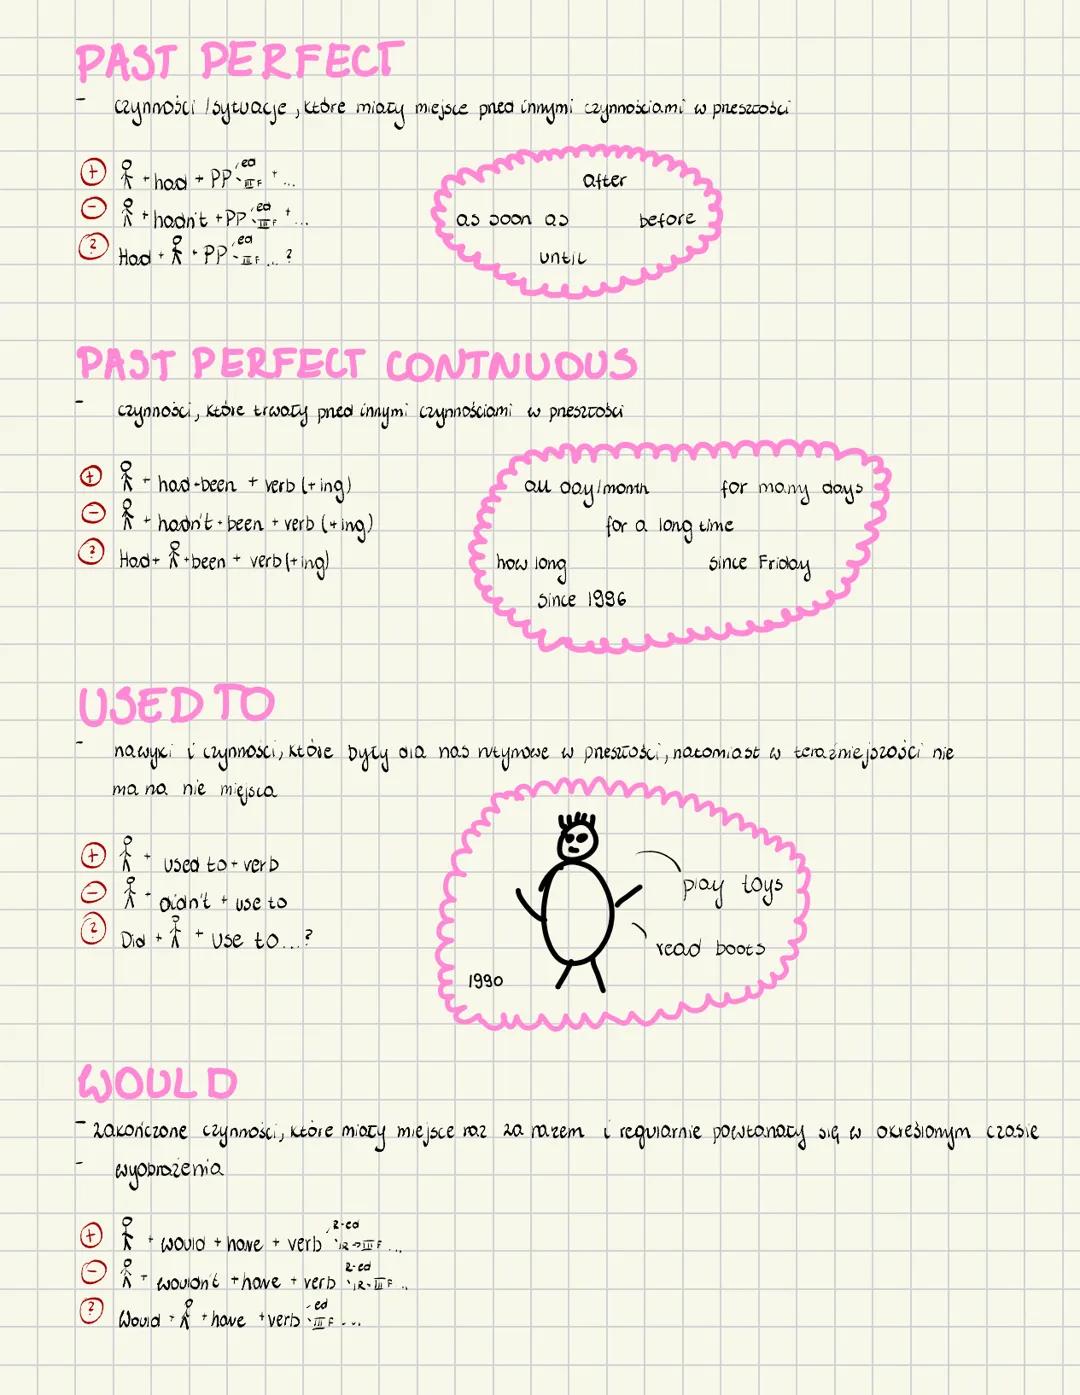 PAST PERFECT
- czynności / sytuacje, które miały miejsce przed innymi czynnościami w przeszłości
+ + had + PP -ed -III F + ...
- + hadn't + PP -ed -III F + ...
? Had + + PP -ed -III F ... ?
after
as soon as before
until
PAST PERFECT CONTNUOUS
- czynności, które trwały przed innymi czynnościami w przeszłości
+ + had + been + verb (+ing)
- + hadn't + been + verb (+ing)
? Had + + been + verb (+ing)
all day/month for many days
for a long time
how long since Friday
since 1996
USED TO
- nawyki i czynności, które były dla nas rutynowe w przeszłości, natomiast w teraźniejszości nie
ma na nie miejsca
+ + used to + verb
- + didn't + use to
? Did + + use to...?
play toys
read boots
1990
WOULD
- zakończone czynności, które miały miejsce raz za razem i regularnie powtarzały się w określonym czasie
- wyobrażenia
+ + would + have + verb R-ed IR→III F ...
- + wouldn't + have + verb R-ed IR-III F ..
? Would + + have + verb -ed -III F ...